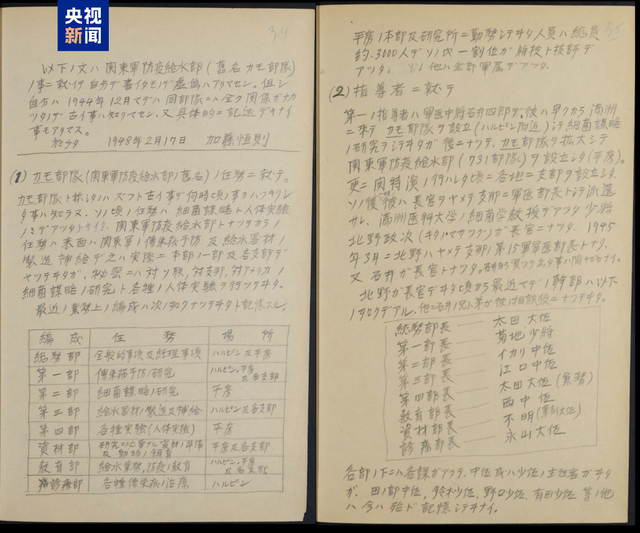 央视新闻
34
以下ノ文ハ関東軍防疫給水部（旧名カモ部隊）
ノ事ニ就イテ自分ガ書イタモノデ虚偽ハアリマセン。但シ
自分ハ1944年12月マデハ同部隊ニハ全ク関係ガナカ
ツタノデ古イ事ハ知リマセン。又具体的ニ記述デキナイ
事モアリマス。
1948年2月17日 加藤恒則
(1) カモ部隊（関東軍防疫給水部ノ旧名）ノ任務ニ就テ。
カモ部隊ト称シタノハズツト古イ事デ何時頃ノ事カハツキリシ
タ事ハ知ラヌ。ソノ頃ノ任務ハ細菌謀略ト人体実験
ノミデアツタトイフ。関東軍防疫給水部トナツテカラノ
任務ハ表面ハ関東軍ノ傳染病予防及給水器材ノ
製造補給デアルガ実際ニ本部ノ一部及各支部デ
ヤツテヰタガ、秘密ニハ対ソ联、対支那、対アメリカノ
細菌謀略ノ研究ト各種ノ人体実験ヲ行ツテヰタ。
最近ノ業務上ノ編成ハ次ノ如クナツテヰタト記憶スル。
編成 任務 場所
総務部 全般的事項及経理事項 ハルビン及平房
第一部 傳染病予防ノ研究 ハルビン、平房及各支部
第二部 細菌謀略ノ研究 平房
第三部 給水器材ノ製造及補給 ハルビン及各支部
第四部 各種実験（人体実験） 平房
資材部 平房及各支部
教育部 給水業務、防疫ノ教育 ハルビン、平房及各支部
診療部 各種傳染病ノ治療 ハルビン
35
平房ノ本部及研究所ニ勤務シテヰタ人員ハ総員
約.3000人デソノ内一割位ガ将校ト技師デ
アツタ。ソノ他ハ全部軍属デアツタ。
(2) 指導者ニ就テ
第一ノ指導者ハ軍医中将石井四郎デ、彼ハ早クカラ満洲
ニ来テカモ部隊ヲ設立（ハルビン附近）シテ細菌謀略
ノ研究ヲシテヰタガ後ニナツテ、カモ部隊ヲ拡大シテ
関東軍防疫給水部（731部隊）ヲ設立シタ（平房）。
更ニ関特演ノ行ハレタ頃ニ各地ニ支部ヲ設立シタ。
ソノ後彼ハ長官ヲヤメテ支那ニ軍医部長トシテ派遣
サレ、満洲医科大学ノ細菌学教授デアツタ少将
北野政次（キタノマサツグ）ガ長官ニナツタ。1945
年3月ニ北野ハヤメテ支那ノ第15軍軍医部長トナリ、
又石井ガ長官トナツタ。
北野ガ長官デヰタ頃カラ最近マデノ幹部ハ以下
ノ如クデアル。
総務部長 太田大佐
第一部長 菊地少将
第二部長 イカリ中佐
第三部長 江口中佐
第四部長 太田大佐（兼務）
教育部長 西中佐
資材部長 不明（薬剤大佐）
診療部長 永山大佐
各部ノ下ニハ各課ガアツテ、中佐或ハ少佐ノ主任者ガヰタ
ガ、田部中佐、鈴木少佐、野口少佐、有田少佐等ノ他
ハ今ハ殆ド記憶シテヰナイ。